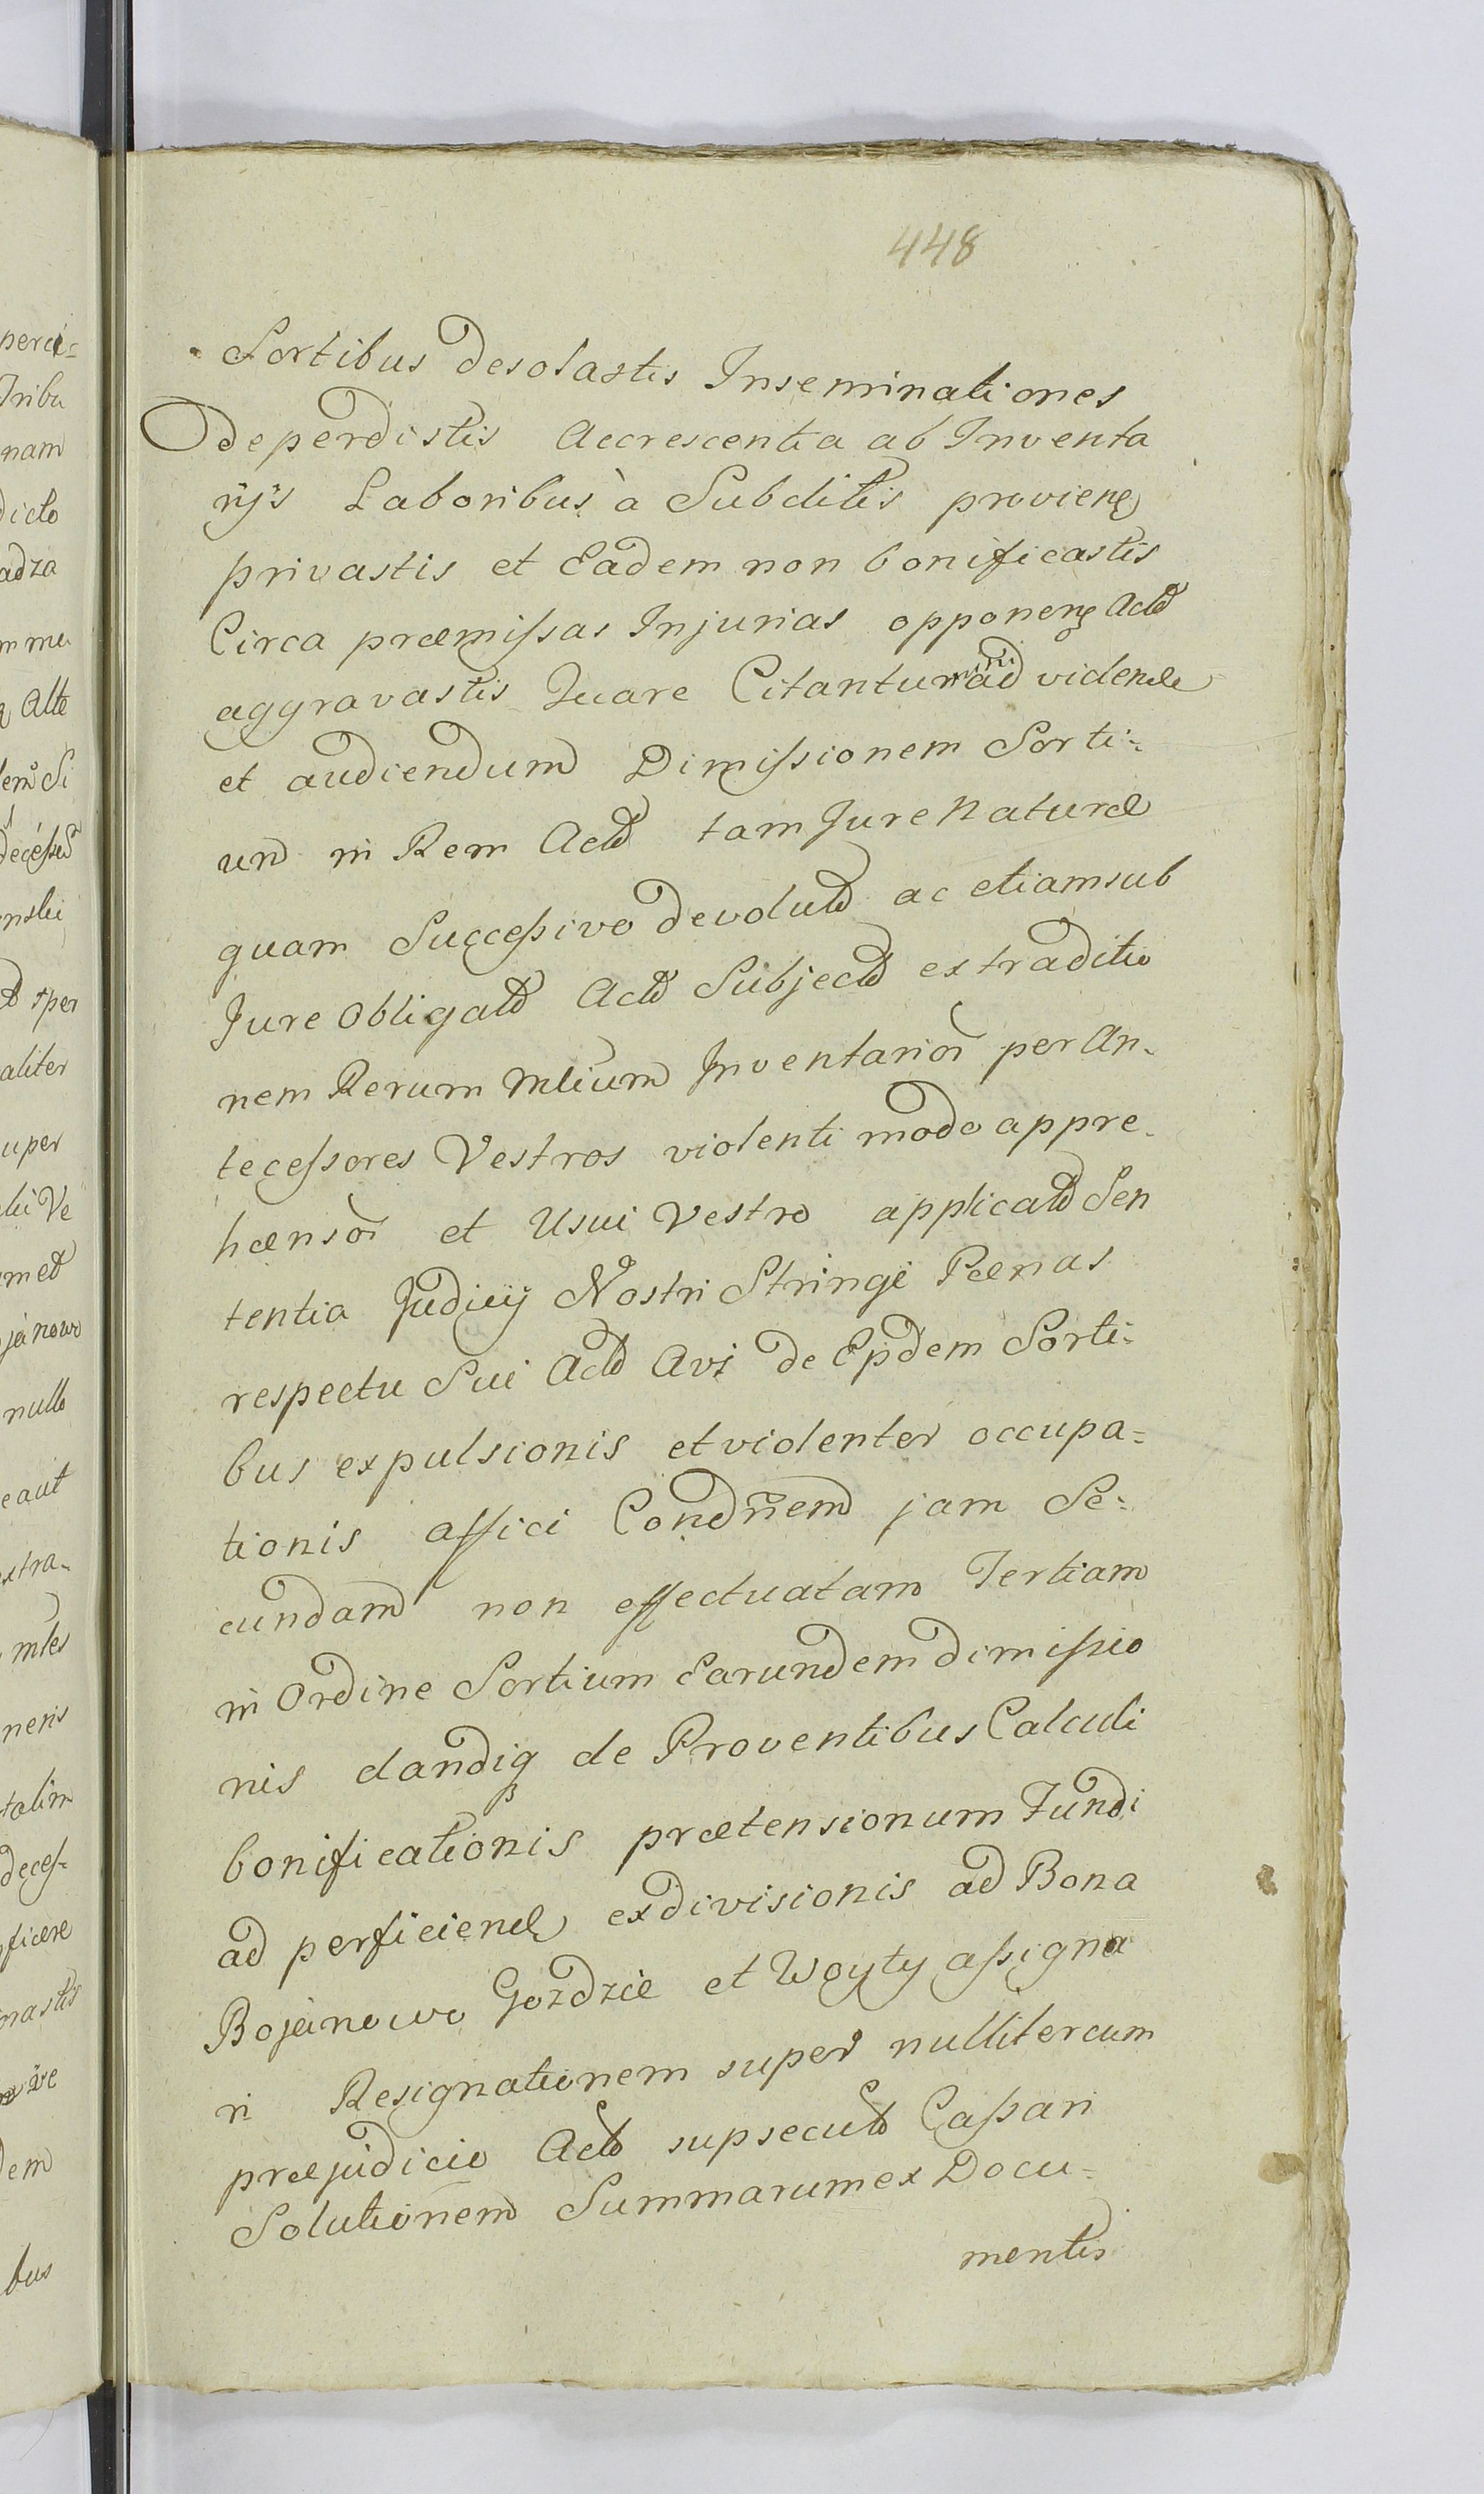 448
Sortibus desolastis Inseminationes
deperdistis Accrescentia ab Inventa
rijs Laboribus à Subditis provienꝫ
privastis et Eadem non bonificastis
Circa præmissas Injurias opponenꝫ Actō
aggravastis Quare Citantur ad vidend
et audiendum Dimissionem Sorti-
um in Rem Actō tam Jure Naturæ
quam Successivo devolutō ac etiam sub
Jure Obligatō Actō Subjectō extraditio
nem Rerum Mlium Inventarioꝝ per An-
tecessores Vestros violenti modo appre-
hænsoꝝ et Usui Vestro applicatō Sen
tentia Judicij Nostri Stringi Pœnas
respectu Sui Actō Avi de Eisdem Sorti-
bus expulsionis et violenter occupa=
tionis affici Condnem jam Se-
cundam non effectuatam Tertiam
in Ordine Sortium Earundem dimissio
nis dandiꝗ de Proventibus Calculi
bonificationis prætensionum Fundi
ad perficiend exdivisionis ad Bona
Bojanowo Gozdzie et Woyty assigna
ri Resignationem super nulliter cum
præjudicio Actō supsecutō Cassari
Solutionem Summarum ex Docu-
mentis
perci=
Tribu
nam
dicto
adza
Alte
aliter
uper
nullo
eaut
xtra-
mles
neris
deces-
ficere
nastis
dem
bus